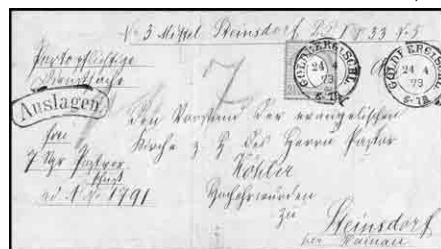 No 3 Mittel Steinsdorf
Portopflichtige
Dienstsache
Auslagen
frei
7
GOLDBERG I SCHL.
24 4
73
5-7N.
GOLDBERG I SCHL.
24 4
73
5-7N.
Den Vorstand der evangelischen
Kirche z. H. des Herrn Pastor
Köhler
Hochehrwürden
zu
Steinsdorf
bei Hainau
7 Sgr
1791